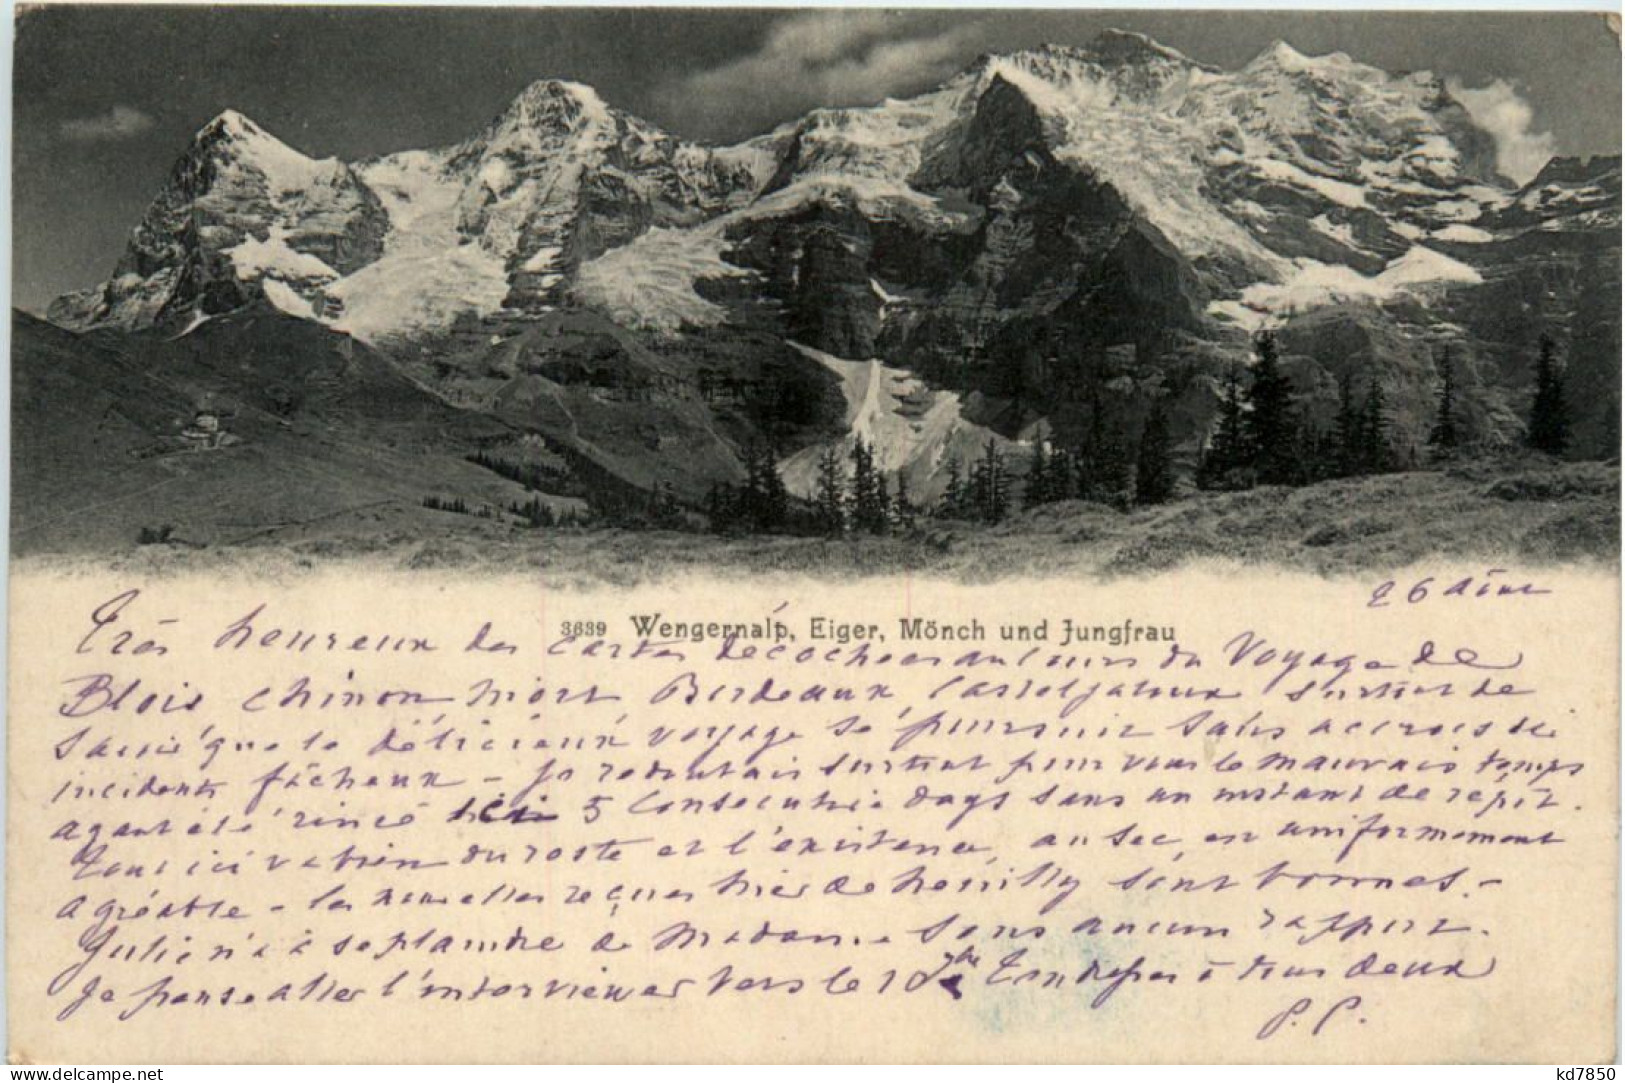 26 Aout
3639 Wengernalp, Eiger, Mönch und Jungfrau
Très heureux des cartes decochees au cours du Voyage de
Blois Chinon Niort Bordeaux, Casteljaloux surtout de
savoir que le délicieux voyage se poursuit sans accrocs ni
incidents fâcheux - Je redoutais surtout pour vous le mauvais temps
ayant été rincé ici 5 consecutive days sans un instant de répit.
Tout ici va bien du reste et l'existence, au sec, est uniformement
agréable - les nouvelles reçues hier de Neuilly sont bonnes. -
Julie n'a à se plaindre de Madame sous aucun rapport.
Je pense aller l'interviewer vers le 10 Tendresses à tous deux
P. P.
kd7850